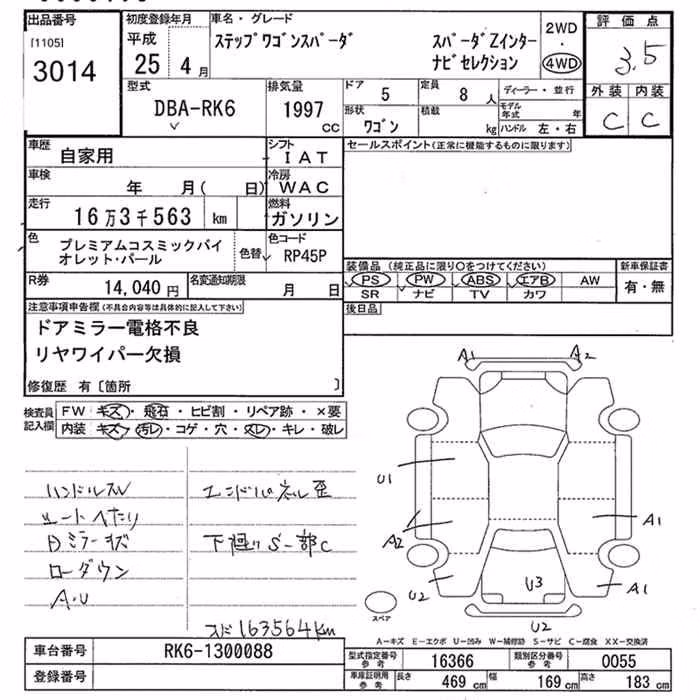 出品番号 初度登録年月 車名・グレード 評価点
[1105] 平成 ステップワゴンスパーダ スパーダZインター 2WD
3014 25年 4月 ナビセレクション ・ 4WD 3.5
型式 排気量 ドア 5 定員 8人 ディーラー・並行 外装 内装
DBA-RK6 1997cc 形状 ワゴン 積載 kg モデル年式 年 C C
ハンドル 左・右
車歴 自家用 シフト IAT セールスポイント(正常に機能するものに限ります)
車検 年 月( 日) 冷房 WAC
走行 16万3千563 km 燃料 ガソリン
色 プレミアムコスミックバイオレット・パール 色替 色コード RP45P
装備品 (純正品に限り○をつけてください) 新車保証書
R券 14,040円 名変通知期限 月 日 PS PW ABS エアB AW 有・無
SR ナビ TV カワ
注意事項申告欄(不具合内容等は具体的に記入して下さい) 後日品
ドアミラー電格不良
リヤワイパー欠損
修復歴 有〔箇所 〕
検査員記入欄 FW キズ・飛石・ヒビ割・リペア跡・×要
内装 キズ・汚レ・コゲ・穴・スレ・キレ・破レ
A1 A2
U1
A2 A1
U2 U3 A1
U2
スペア
ハンドルスレ エンドパネル歪
シートヘたり
Dミラーキズ 下廻りS一部C
ローダウン
A・U
スピ163564km
A-キズ E-エクボ U-凹み W-補修跡 S-サビ C-腐食 XX-交換済
車台番号 RK6-1300088 型式指定番号 参考 16366 類別区分番号 参考 0055
登録番号 車庫証明用 参考 長さ 469cm 幅 169cm 高さ 183cm